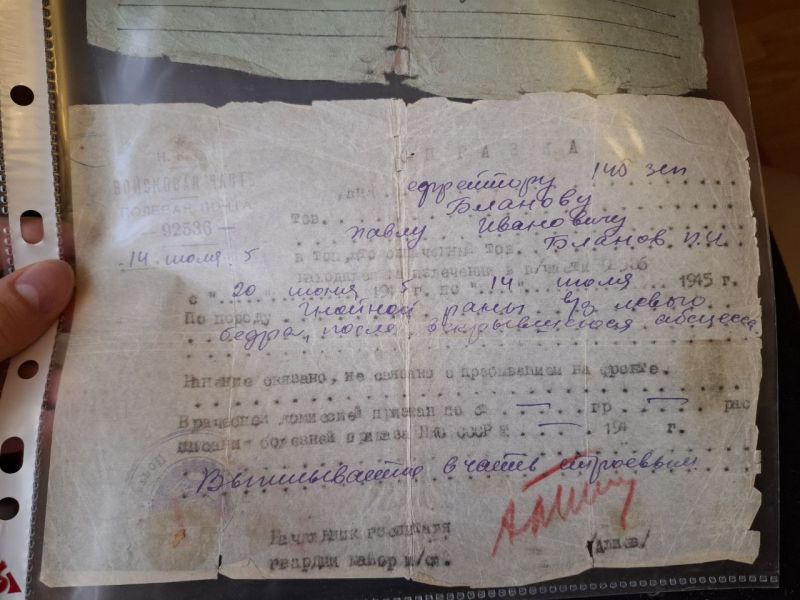 СПРАВКА
Н. К. О.
ПОЛЕВАЯ ПОЧТА
— 92536 —
14 июля 5
ефрейтору 146 зсп
Тов. Бланову
Павлу Ивановичу
в том, что означенный Тов. Бланов П.И
находился на излечении в
с " 20 июня 1945 по " 14 " июля 1945 г.
По поводу Гнойной раны в/з левого
бедра, после вскрывшегося абсцесса.
связано, не связано с пребыванием на фронте.
Врачебной комиссией признан по ст. — гр — рас
писания болезней приказа НКО СССР № — 194 г.
Выписывается в часть строевым
Начальник госпиталя
гвардии майор м/сл.